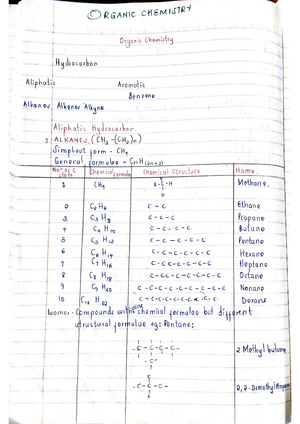 ① ORGANIC CHEMISTRY
Organic Chemistry
Hydrocarbon
Aliphatic Aromatic
Benzene
Alkanes Alkenes Alkyne
Aliphatic Hydrocarbon
ALKANES. (CH3 - (CH2)n)
Simplest form - CH4
General formulae - CnH(2n+2)
No. of C atom Chemical formulae Chemical Structure Name
1 CH4 H-C-H Methane.
2 C2H6 C-C Ethane
3 C3H8 C-C-C Propane
4 C4H10 C-C-C-C Butane
5 C5H12 C-C-C-C-C Pentane
6 C6H14 C-C-C-C-C-C Hexane
7 C7H16 C-C-C-C-C-C-C Heptane
8 C8H18 C-C-C-C-C-C-C-C Octane
9 C9H20 C-C-C-C-C-C-C-C-C Nonane
10 C10H22 C-C-C-C-C-C-C-C-C-C Decane
Isomer - Compounds with same chemical formulae but different
structural formulae eg: Pentane;
-C-C-C-C-
C
2 Methyl butane
C
-C-C-C-
C
2,2-Dimethyl